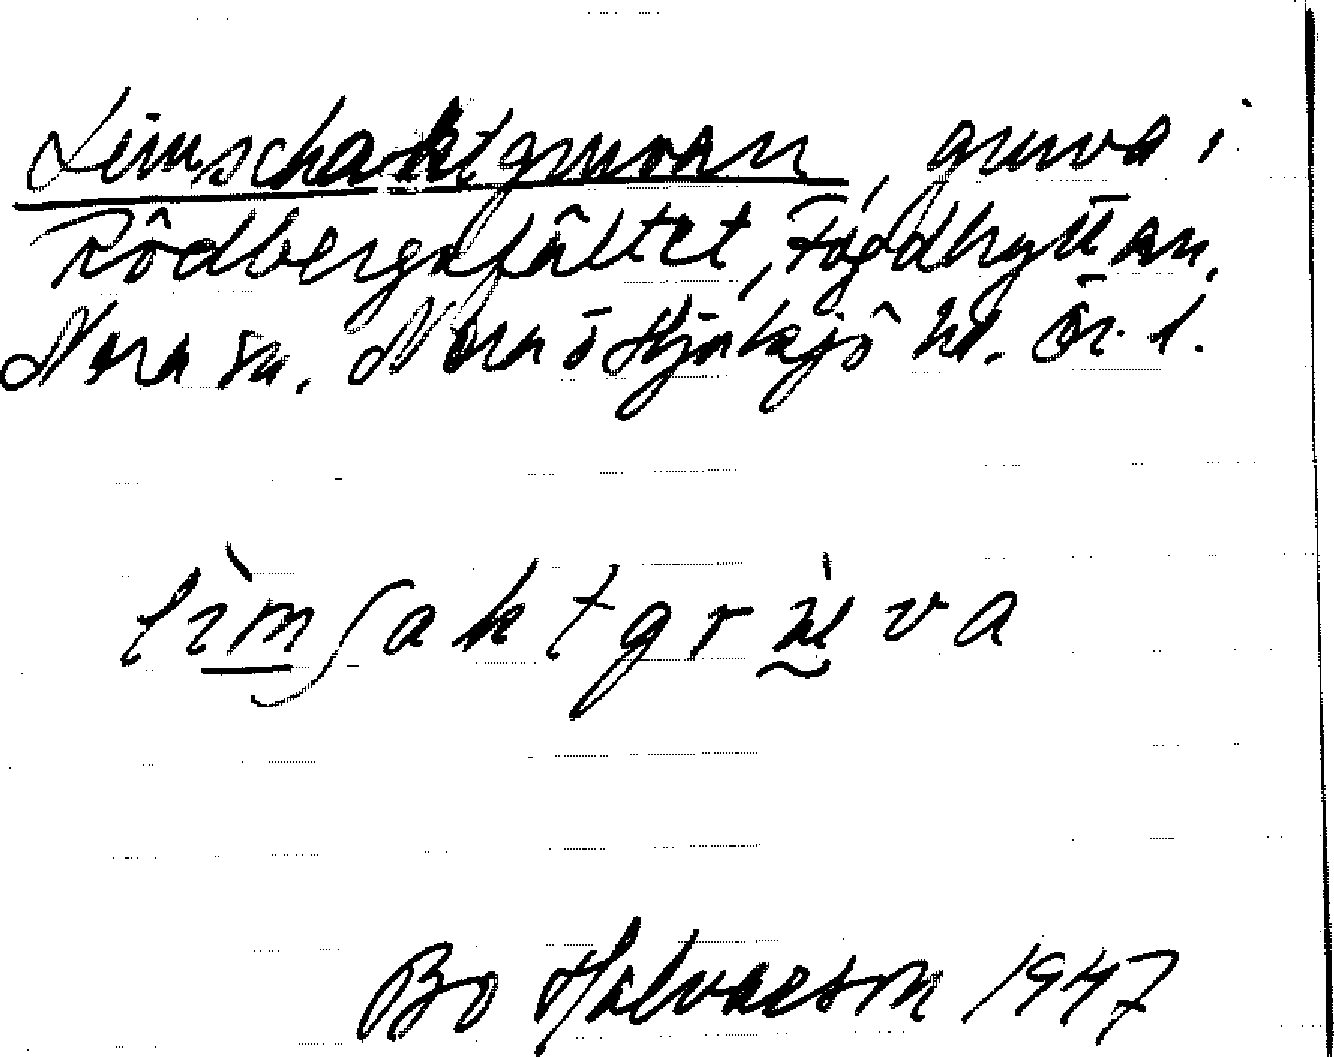 Limschaktgruvan, gruva i
Rödbergsfältet, Fogdhyttan,
Nora sn. Nora o Hjulsjö hd. Ör. l.
lìmʃaktgrùva
Bo Halvarson 1947